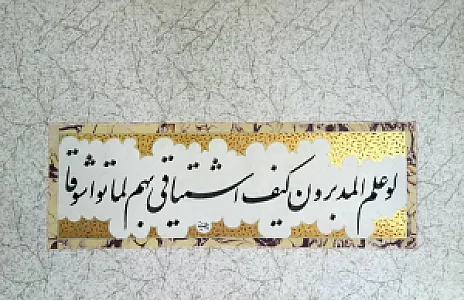 لو علم المدبرون کیف اشتیاقی بهم لماتوا شوقا